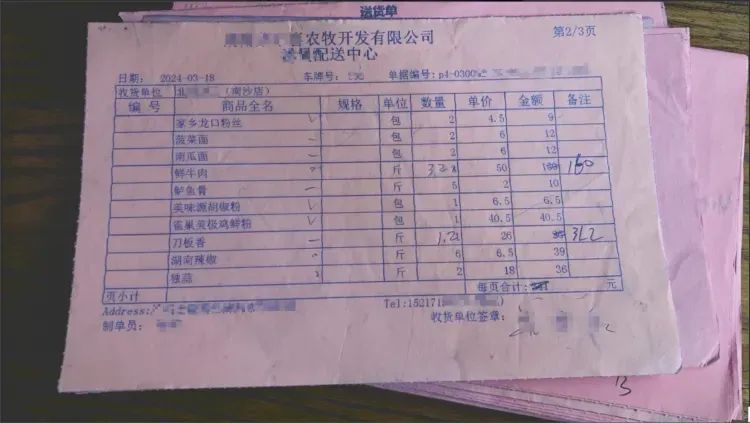 送货单
农牧开发有限公司
配送中心
第2/3页
日期: 2024-03-18 车牌号: 单据编号:p4-0300
收货单位 (南沙店)
编 号 商品全名 规格 单位 数量 单价 金额 备注
家乡龙口粉丝 包 2 4.5 9
菠菜面 包 2 6 12
南瓜面 包 2 6 12
鲜牛肉 斤 3.2 50 160
鲈鱼骨 斤 5 2 10
美味源胡椒粉 包 1 6.5 6.5
雀巢美极鸡鲜粉 包 1 40.5 40.5
刀板香 斤 26
湖南辣椒 斤 6 6.5 39
独蒜 斤 2 18 36
页小计 每页合计: 元
Address: Tel:15217
制单员: 收货单位签章: